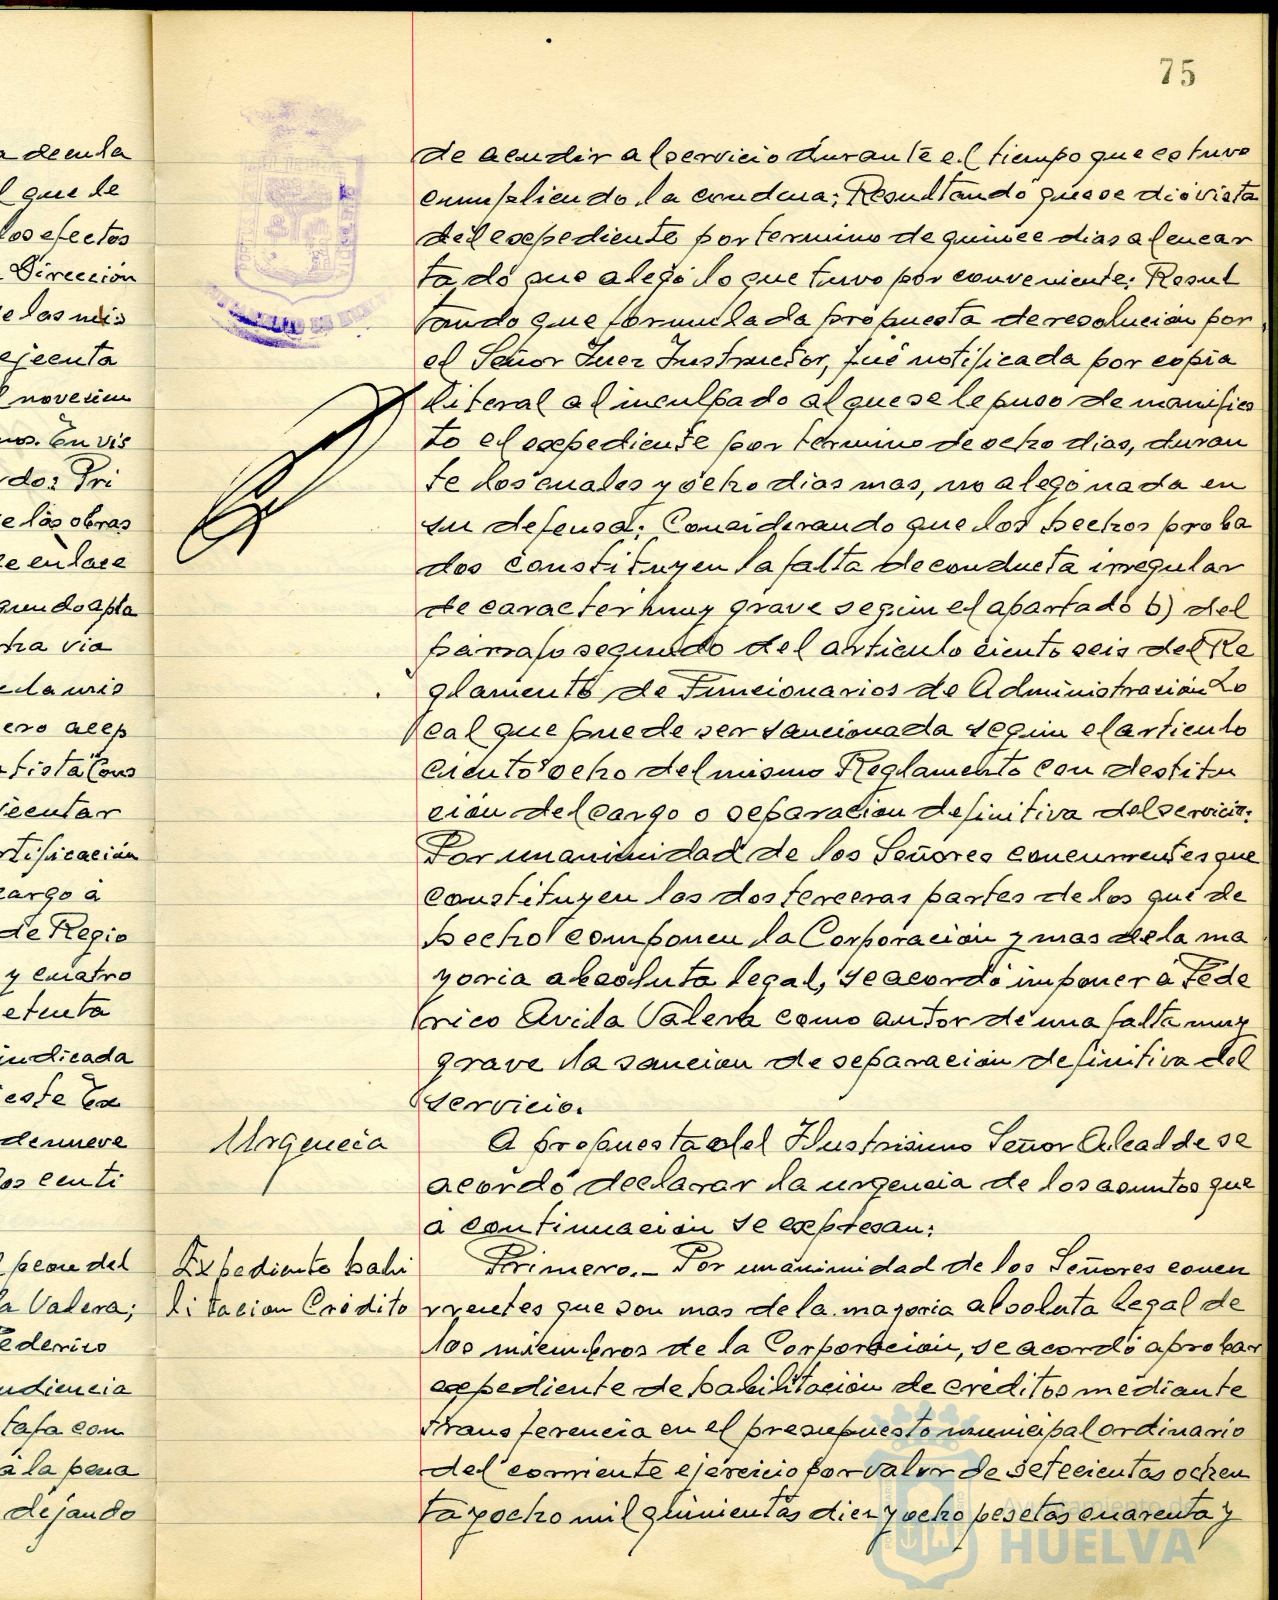 75
a de cula
l que le
los efectos
Dirección
e las mis
ejecuta
l novecien
nos. En vis
rdo: Pri
e las obras
e enlace
gundo apla
cha via
e la mis
ero acep
tista Cons
jecutar
rtificación
cargo á
de Regio
y cuatro
etenta
indicada
este Ex
de nueve
los centi
peon del
la Valera;
ederico
udiencia
tafa con
á la pena
dejando
de acudir al servicio durante el tiempo que estuvo
cumpliendo la condena; Resultando que se dió vista
del expediente por termino de quince dias al encar
tado que alegó lo que tuvo por conveniente; Resul
tando que formulada propuesta de resolución por
el Señor Juez Instructor, fué notificada por copia
literal al inculpado al que se le puso de manifies
to el expediente por termino de ocho dias, duran
te los cuales y ocho dias mas, no alegó nada en
su defensa; Considerando que los hechos proba
dos constituyen la falta de conducta irregular
de caracter muy grave según el apartado b) del
párrafo segundo del articulo ciento seis del Re
glamento de Funcionarios de Administración Lo
cal que puede ser sancionada según el articulo
ciento ocho del mismo Reglamento con destitu
ción del cargo o separación definitiva del servicio;
Por unanimidad de los Señores concurrentes que
constituyen las dos terceras partes de los que de
hecho componen la Corporación y mas de la ma
yoria absoluta legal, se acordó imponer á Fede
rico Avila Valera como autor de una falta muy
grave la sanción de separación definitiva del
servicio.
Urgencia
A propuesta del Ilustrisimo Señor Alcalde se
acordó declarar la urgencia de los asuntos que
á continuación se expresan:
Expediente habi
litación Crédito
Primero.- Por unanimidad de los Señores concu
rrentes que son mas de la mayoria absoluta legal de
los miembros de la Corporación, se acordó aprobar
expediente de habilitación de créditos mediante
transferencia en el presupuesto municipal ordinario
del corriente ejercicio por valor de setecientas ochen
ta y ocho mil quinientas diez y ocho pesetas cuarenta y
Ayuntamiento de
HUELVA